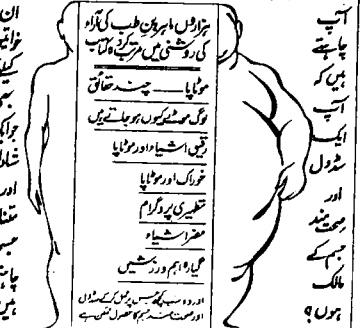 آپ
چاہتے
ہیں کہ
آپ
ایک
سڈول
اور
صحت مند
جسم کے
مالک
ہوں؟
ہزاروں ماہرین طب کی آراء
کی روشنی میں مرتب کردہ کتاب
موٹاپا ــــ چند حقائق
لوگ موٹے کیوں ہو جاتے ہیں
رقیق اشیاء اور موٹاپا
خوراک اور موٹاپا
تطہیری پروگرام
مضر اشیاء
گیارہ اہم ورزشیں
اور وہ سب کچھ جس پر عمل کر کے سڈول
اور صحت مند جسم کا حصول ممکن ہے
ان
خواتین
کیلئے
اور